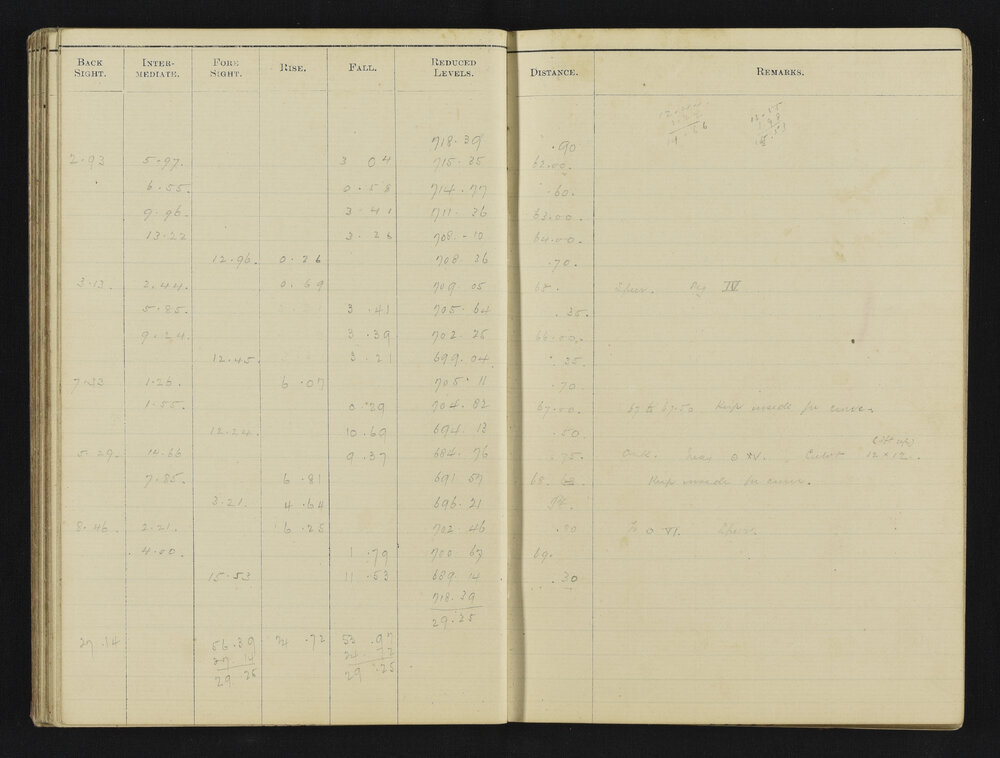 BACK SIGHT. INTER-MEDIATE. FORE SIGHT. RISE. FALL. REDUCED LEVELS. DISTANCE. REMARKS.
718.39 .90
2.93 5.97. 3 04 715.35 62.00.
6.55. 0.58 714.77 .60.
9.96. 3.41 711.36 63.00.
13.22 3.26 708.10 64.00.
12.96. 0.26 708 36 .70.
3.13 2.44. 0.69 709 05 65. Spur. Peg IV
5.85. 3.41 705.64 .35.
9.24. 3.39 702.25 66.00.
12.45. 3.21 699.04 .35.
7.33 1.26. 6.07 705.11 .70
1.55. 0.29 704.82 67.00. 67 to 67.50 Keep inside for curve.
12.24. 10.69 694.13 .50
5.29. 14.66 9.37 684.76 .75. O XV. Culvt 12 x 12.
7.85. 6.81 691 57 68. Keep inside for curve.
3.21. 4.64 696.21
8.46 2.21. 6.25 702.46 .80 O VI. Spur.
4.00. 1.79 700 67 69.
15.53 11.53 689.14 .30
718.39
29.25
27.14 56.39 24.72 53.97
27.14 24.72
29.25 29.25